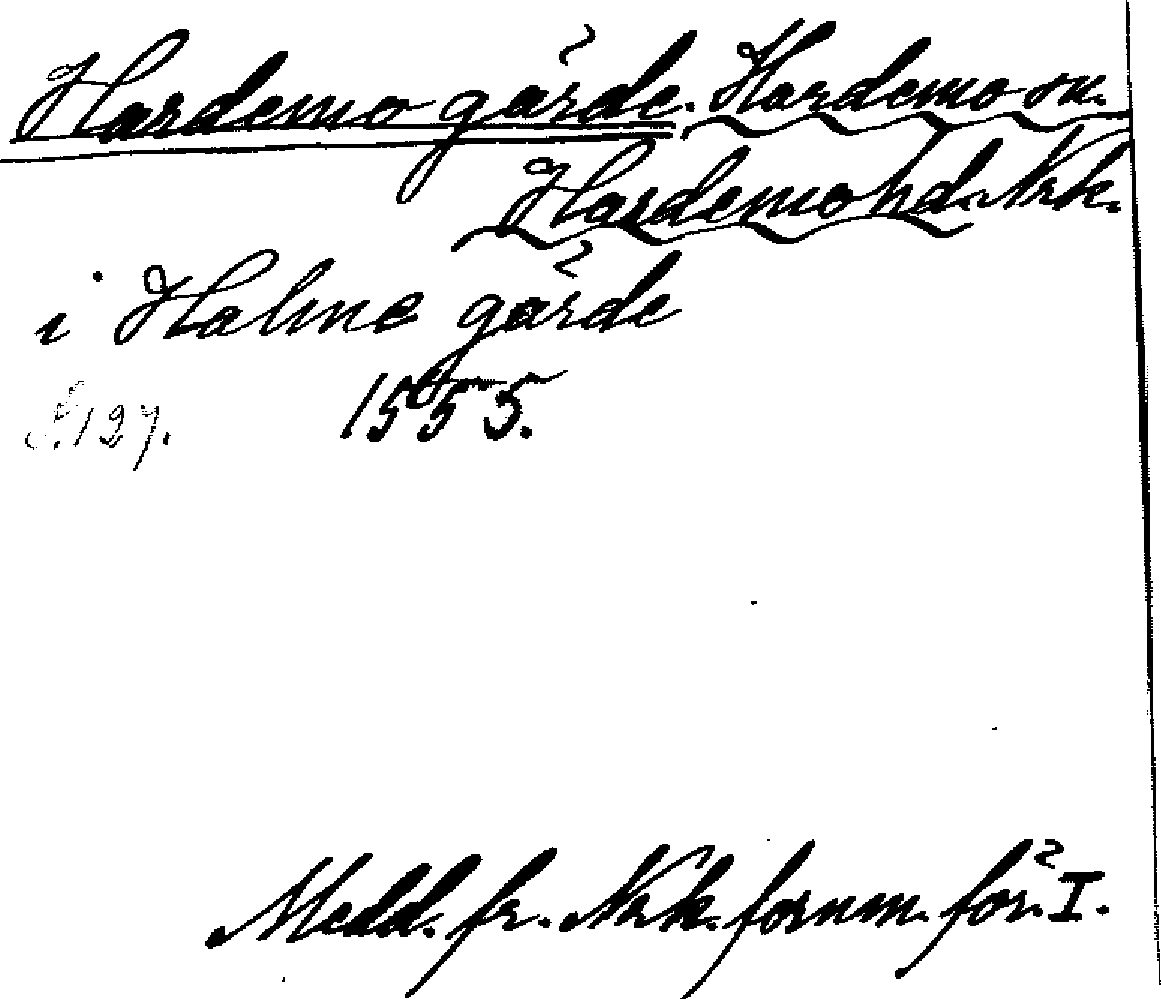 Hardemo gärde. Hardemo sn.
Hardemo hd. Nrk.
i Halme gärde
S. 127. 1555.
Medd. fr. Nrk. fornm. för. I.